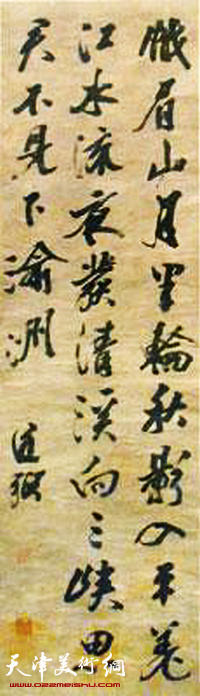 峨眉山月半輪秋影入平羌
江水流夜發清溪向三峽思
君不見下渝洲
天津美术网
www.022meishu.com